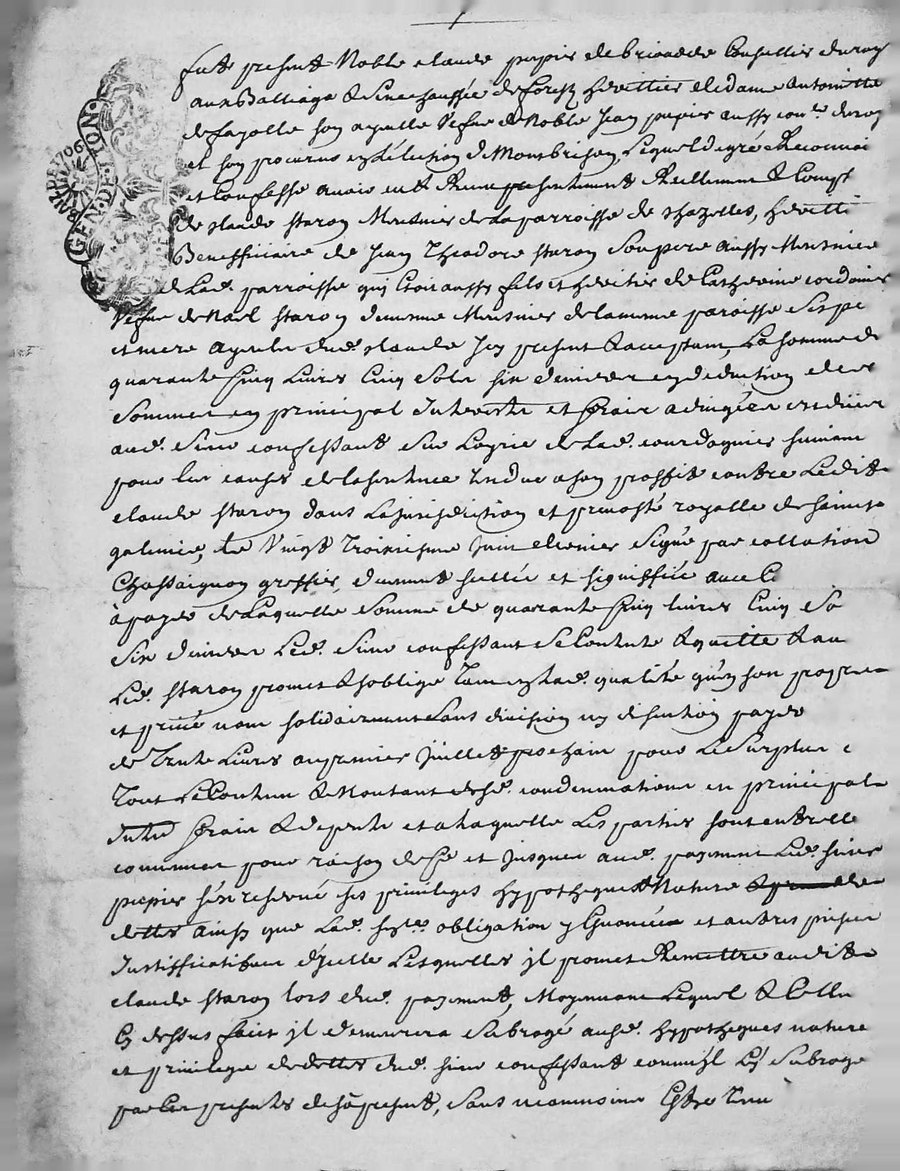 GEN. DE LION.
Fut present Noble claude pupier de brioude Conseillier du roy
aux Balliage & Senechaussée de forest heritier de dame Antoinette
de fayolle son ayeulle vefve de Noble Jean pupier aussy con.er du roy
et son procureur en l'élection de Montbrison, Lequel de gré a Reconneu
et Confesse avoir eut & Receu presentement & Reellement
de claude staron Meusnier de La parroisse de chazelles, heritier
Beneffissiaire de Jean Theodore staron son pere aussy Meusnier
de Lad. parroisse qui Etoit aussy fils et heritier de Catherine cordonier
Vefve de Noel staron Meusnier de la mesme paroisse ses pe
et mere ayeulx dud. claude Icy present & acceptant, La somme de
quarante Cinq Livres Cinq Sols six deniers en deduction des
Sommes en principal Interests et fraix adjugées
aud. Sieur confessant Sur L'oyrie de Lad. courdognier suivant
pour les causes de la sentence rendue a son proffit contre Ledit
claude staron dans La Jurisdiction et prevosté royalle de sainct
galmier, Le Vingt Troiziesme Juin dernier Signé par collation
Chassaignon greffier, deuement scellée et signiffiée avec C
à payer de Laquelle Somme de quarante Cinq livres Cinq So
Six deniers Led. Sieur confessant Se Contente & quitte & au
Led. staron promet & s'oblige Tant en Lad. qualité qu'en son propre
et privé nom solidairement sans division ny discution payer
de Trente Livres au premier Juillet prochain pour Le Surplus
Tout Le Contenu & Montant desd. condemnations en principal
Intts fraix & depents et a Laquelle Les parties sont entrelle
convenues pour raison de ce et Jusques aud. payement Led. sieur
pupier s'est reservé ses privileges hypotheques Nature
dettes ainsy que Lad. obligation y Enoncée et autres pieces
Justifficatives d'Icelle Lesquelles Jl promet Remettre audit
claude staron lors dud. payement, Moyennant Lequel & Celluy
Cy dessus faict Jl demeurera Subrogé ausd. hypotheques nature
et privilege de dettes dud. sieur confessant comme Jl L'y Subroge
par Ces presentes des a present, sans